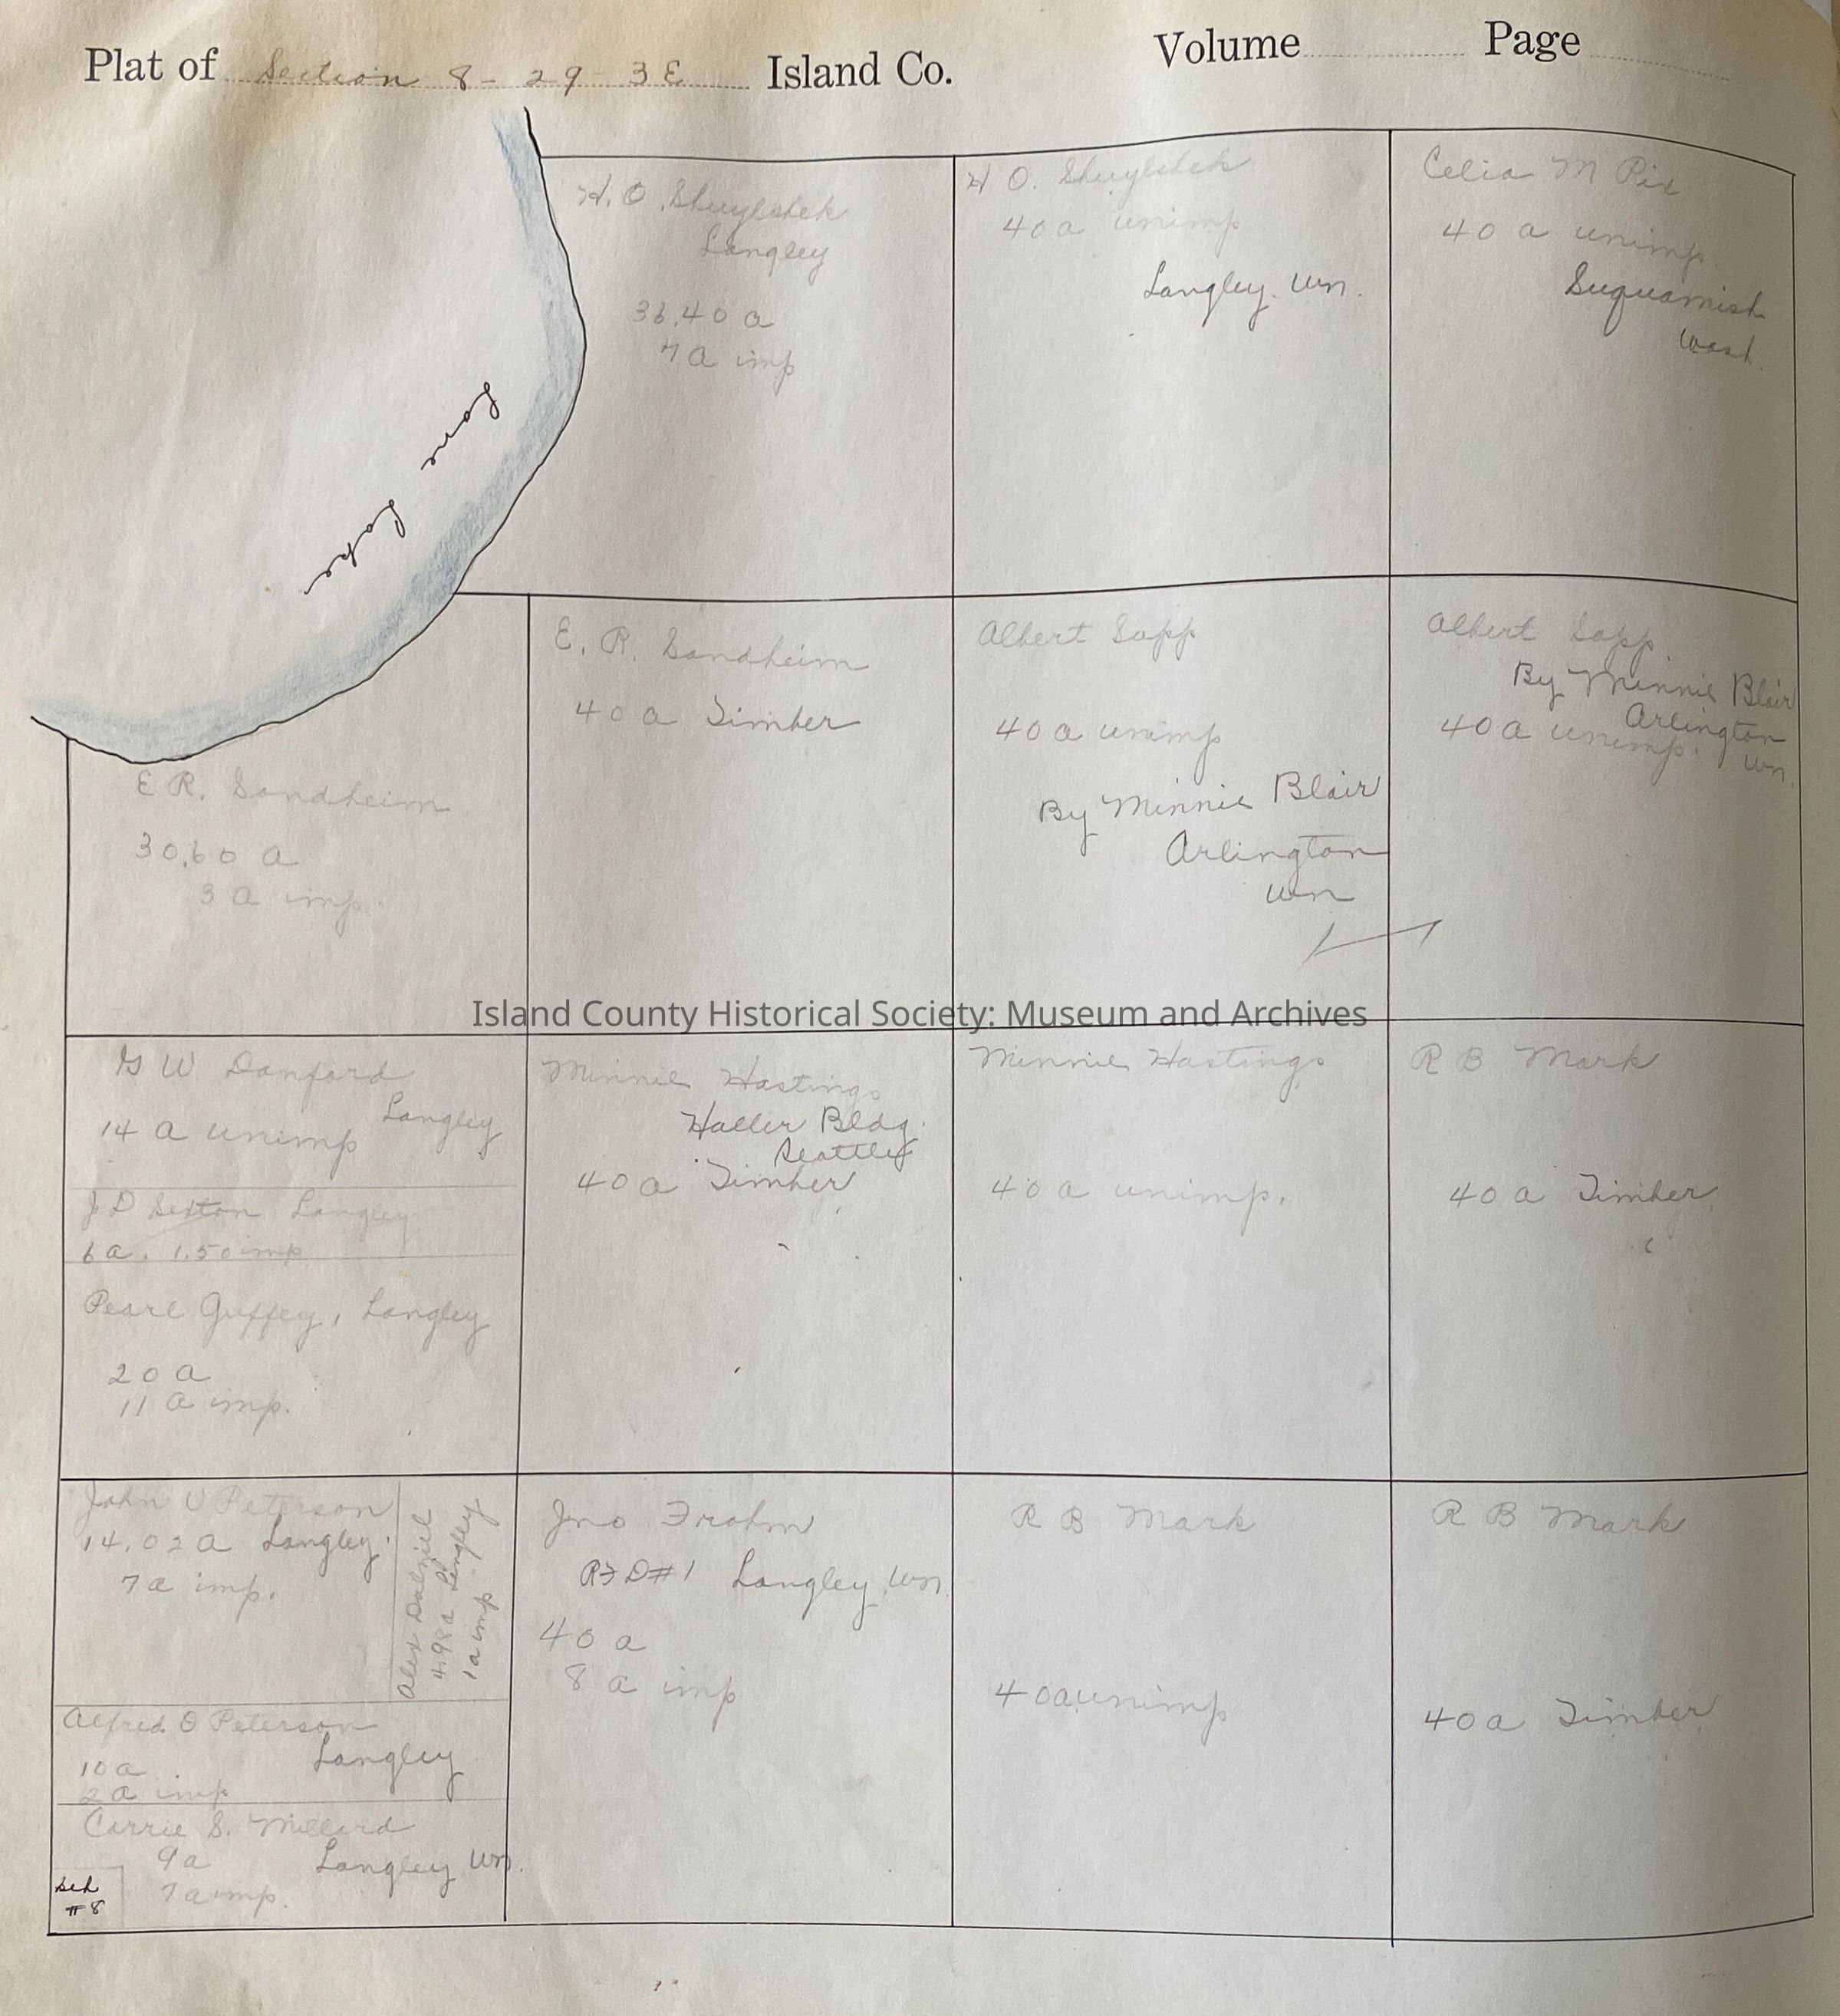 Plat of Section 8 - 29 - 3 E Island Co. Volume Page
H. O. Shuylstek
Langley
36.40 a
7 a imp
H O. Shuylstek
40 a unimp
Langley. Wn.
Celia M Pix
40 a unimp.
Suquamish
Wash.
Lone
Lake
E R. Sandheim
30.60 a
3 a imp.
E. R. Sandheim
40 a Timber
Albert Sapp
40 a unimp
By Minnie Blair
Arlington
Wn
Albert Sapp
By Minnie Blair
Arlington
40 a unimp.
Wn.
Island County Historical Society: Museum and Archives
G W Danford
Langley
14 a unimp
J D Sexton Langley
6 a. 1.50 imp
Pearl Guffey, Langley
20 a
11 a imp.
Minnie Hastings
Haller Bldg.
Seattle
40 a Timber
Minnie Hastings
40 a unimp.
R B Mark
40 a Timber
John O Peterson
14.02 a Langley.
7 a imp.
Alex Dalziel
4.98 a Langley
1 a imp
Alfred O Peterson
Langley
10 a
2 a imp
Carrie S. Millard
9 a Langley Wn.
7 a imp.
Sch
# 8
Jno Frohm
RFD#1 Langley, Wn
40 a
8 a imp
R B Mark
40 a unimp
R B Mark
40 a Timber